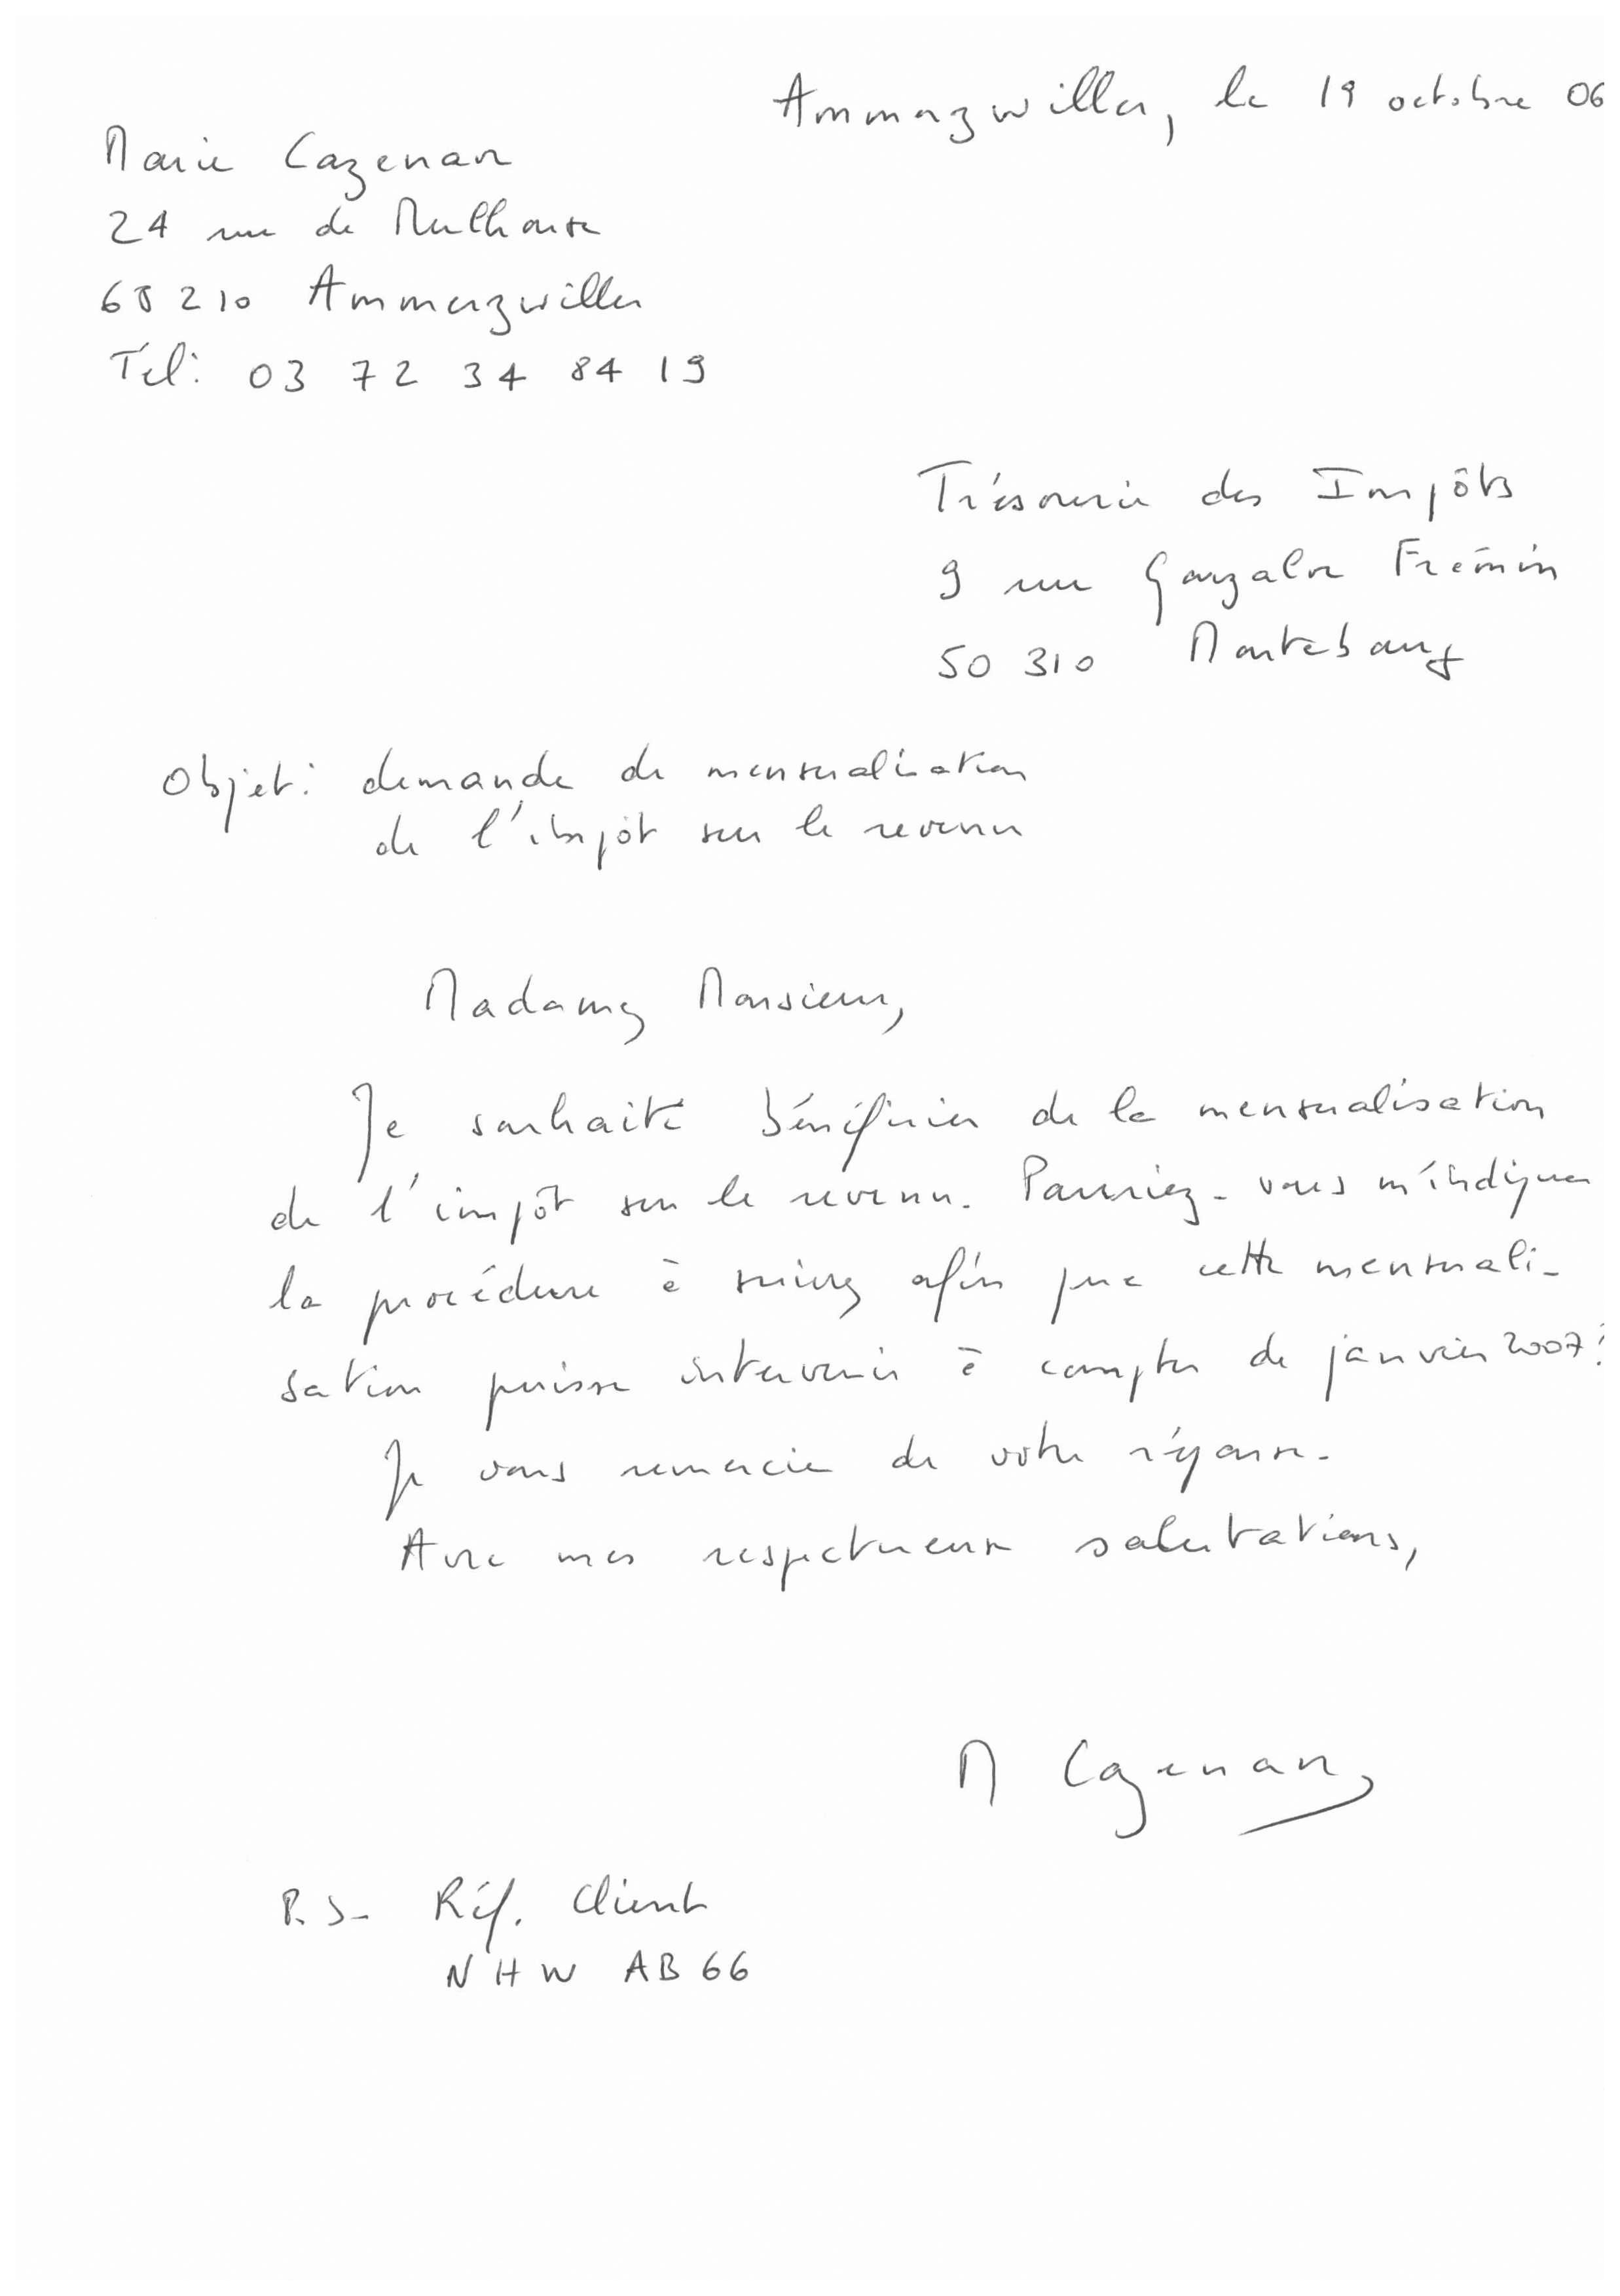 Ammerzwiller, le 19 octobre 06
Marie Cazenan
24 rue de Mulhouse
68210 Ammerzwiller
Tél: 03 72 34 84 19
Trésorerie des Impôts
9 rue Gonzalve Frémin
50 310 Montebourg
Objet: demande de mensualisation
de l'impôt sur le revenu
Madame, Monsieur,
Je souhaite bénéficier de la mensualisation
de l'impôt sur le revenu. Pourriez-vous m'indiquer
la procédure à suivre, afin que cette mensuali-
sation puisse intervenir à compter de janvier 2007?
Je vous remercie de votre réponse.
Avec mes respectueux salutations,
M Cazenan
P.S- Réf. Client
NHW AB66